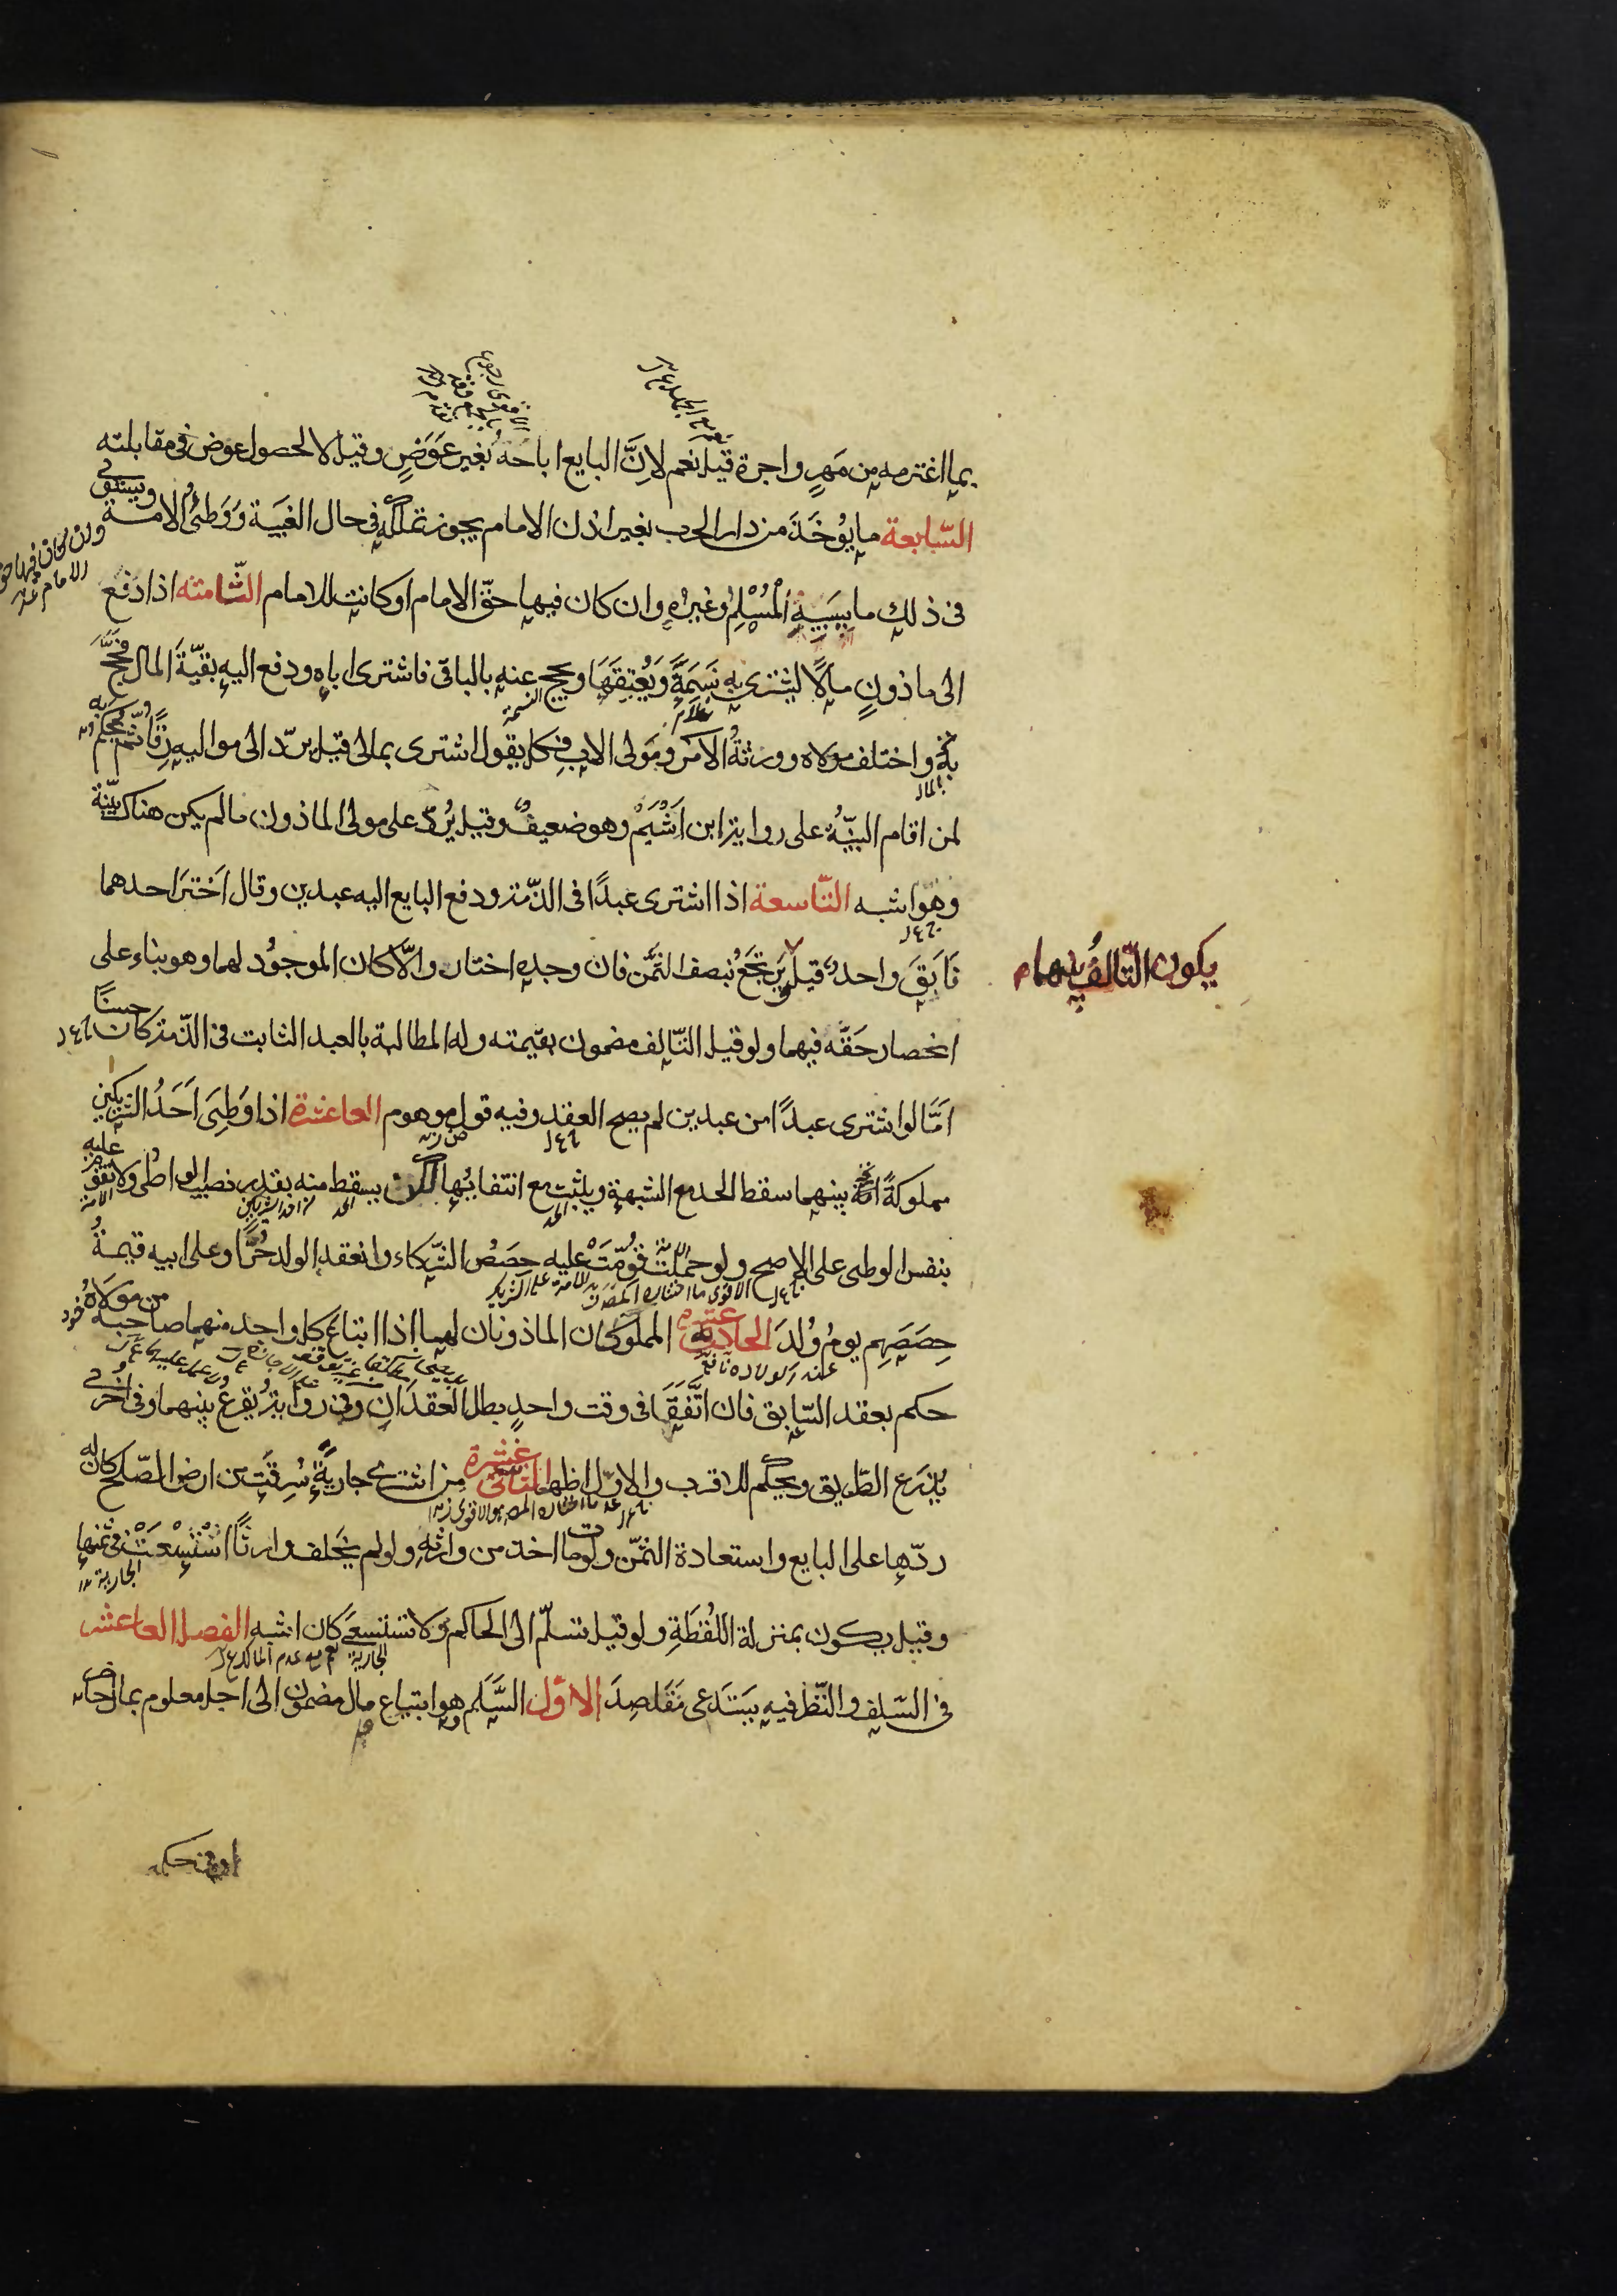 بما اغترمه من مَهرٍ واجرة قيل نعم لاِنَّ البايع اباحَهُ بغير عَوَضٍ وقيل لا لحصول عوض فى مقابلته
السّابعة ما يوُخَذَ من دار الحرب بغير اذن الامام يجوز تملكه فى حال الغيَبة وَوَطئُ الامة ويستوى
فى ذلك ما يسَبيهِ المُسْلِمُ وغيرُهِ وان كان فيها حقّ الامام او كانت للامام الثّامنه اذا دَفع
الى ماذونٍ مالًا ليشترى به نَسَمَةً وَيُعْتِقَهَا ويحج عنه بالباقى فاشترى اباه ودفع اليهِ بقيّةَ المال فحَجَّ
به واختلف مولاه وورثةُ الآمر ومَولى الاب فكل يقول اشترى بمالى قيل يردّ الى مواليه رِقًّا ثم يُحكم به
لمن اقام البيّنةُ على رواية ابن اَشْيَمْ وهو ضعيفٌ وقيل يُردّ على مولى الماذون ما لم يكن هناك بيّنة
وهو اشبه التّاسعة اذا اشترى عبدًا فى الذّمة ودفع البايع اليه عبدين وقال اَختَر احدهما
فَاَبَقَ واحدٌ قيل يَرتجَعُ نصف الثمَن فان وجده اختار والّا كان الموجوُد لهما وهو بناء على
يكون التّالفُ بينهما م
انحصار حَقّه فيهما ولو قيل التّالف مضمون بقيمته وله المطالبة بالعبد الثابت فى الذّمة كان حسنًا
اَمَّا لو اشترى عبدًا من عبدين لم يصح العقد وفيه قول موهوم العاشرة اذا وَطِىَ اَحَدُ الشريكين
مملوكةً بينهما سقط الحد مع الشبهة ويثبت مع انتفائها لكن يسقط منه بقدر نصيب الواطى ولا تقوّم عليه
بنفس الوطى على الاصح ولو حملت قُوِّمَتْ عليه حِصَصُ الشّركاء وانعقد الولد حُرًّا وعلى ابيه قيمةُ
حِصَصِهِم يومَ وُلدَ الحادية عشرة المملوكان الماذونان لهما اذا ابتاعَ كل واحد منهما صاحِبَه من مولاهُ
حكم بعقد السّابق فان اتّفَقَا فى وقت واحدٍ بطل العقدَانِ وفى رواية يُقرعُ بينهما وفى اُخرى
يذرَع الطّريق ويحكم للاقرب والاوّل اظهر الثانى عشرة من اشترى جاريةً سُرِقَت من ارض الصّلح كان له
ردّها على البايع واستعادة الثمّن ولو مات اخذ من وارثه ولو لم يخَلف وارثًا استُسْعِيَتْ فى ثمنها
وقيل يكون بمنزلة اللُقَطَةِ ولو قيل تسلّم الى الحاكم ولا تستسعَى كان اشبه الفصل العاشر
فى السّلف والنّظر فيه يَستَدعى مَقَاصِدَ الاوّل السَّلَم هو ابتياع مال مضمون الى اجل معلوم بمال حاضر
او فى حكمه